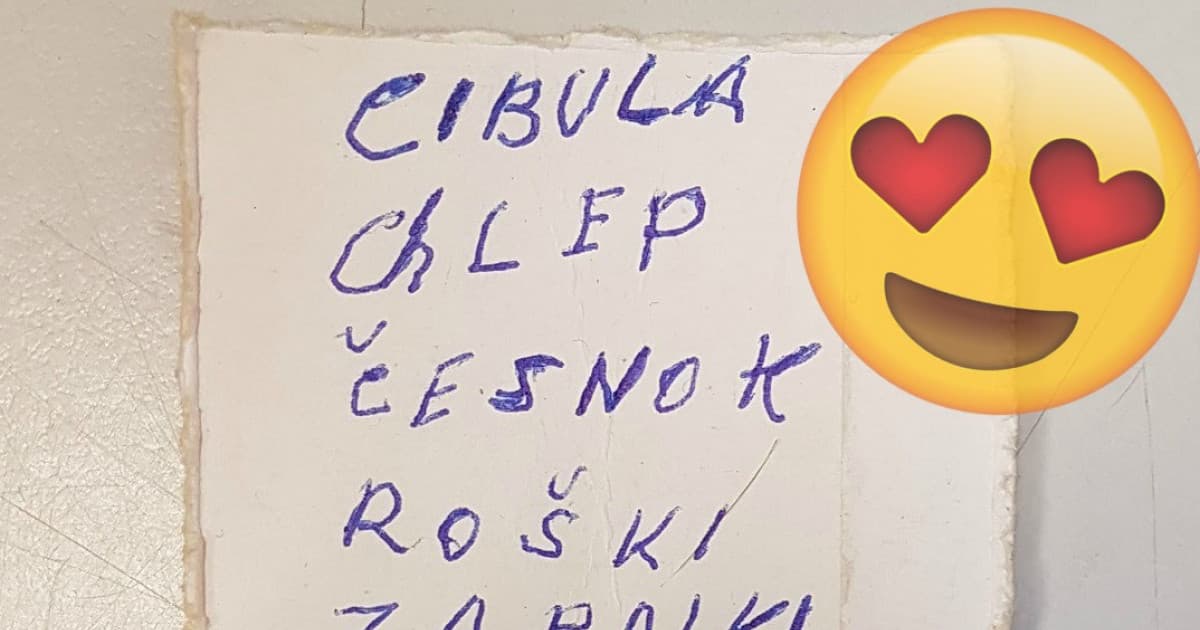 CIBULA
ChLEP
ČESNOK
ROŠKI